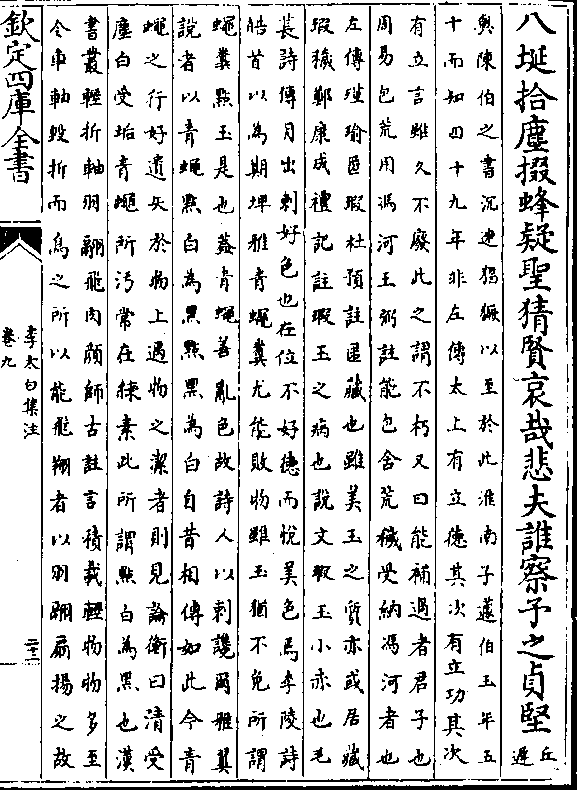 八埏拾塵掇蜂疑聖猜賢哀哉悲夫誰察予之貞堅
丘
遲
與陳伯之書沉迷猖獗以至於此淮南子蘧伯玉年五
十而知四十九年非左傳太上有立德其次有立功其次
有立言雖久不廢此之謂不朽又曰能補過者君子也
周易包荒用馮河王弼註能包含荒穢受納馮河者也
左傳瑾瑜匿瑕杜預註匿藏也雖美玉之質亦或居藏
瑕穢鄭康成禮記註瑕玉之病也說文瑕玉小赤也毛
萇詩傳月出刺好色也在位不好德而悅美色焉李陵詩
皓首以為期埤雅青蠅糞尤能敗物雖玉猶不免所謂
蠅糞點玉是也蓋青蠅善亂色故詩人以刺讒爾雅翼
說者以青蠅點白為黑點黑為白自昔相傳如此今青
蠅之行好遺矢於物上遇物之潔者則見論衡曰清受
塵白受垢青蠅所汚常在練素此所謂點白為黑也漢
書叢輕折軸羽翮飛肉顏師古註言積載輕物物多至
令車軸毀折而鳥之所以能飛翔者以羽翮扇揚之故
欽定四庫全書
李太白集注
卷九
二十二